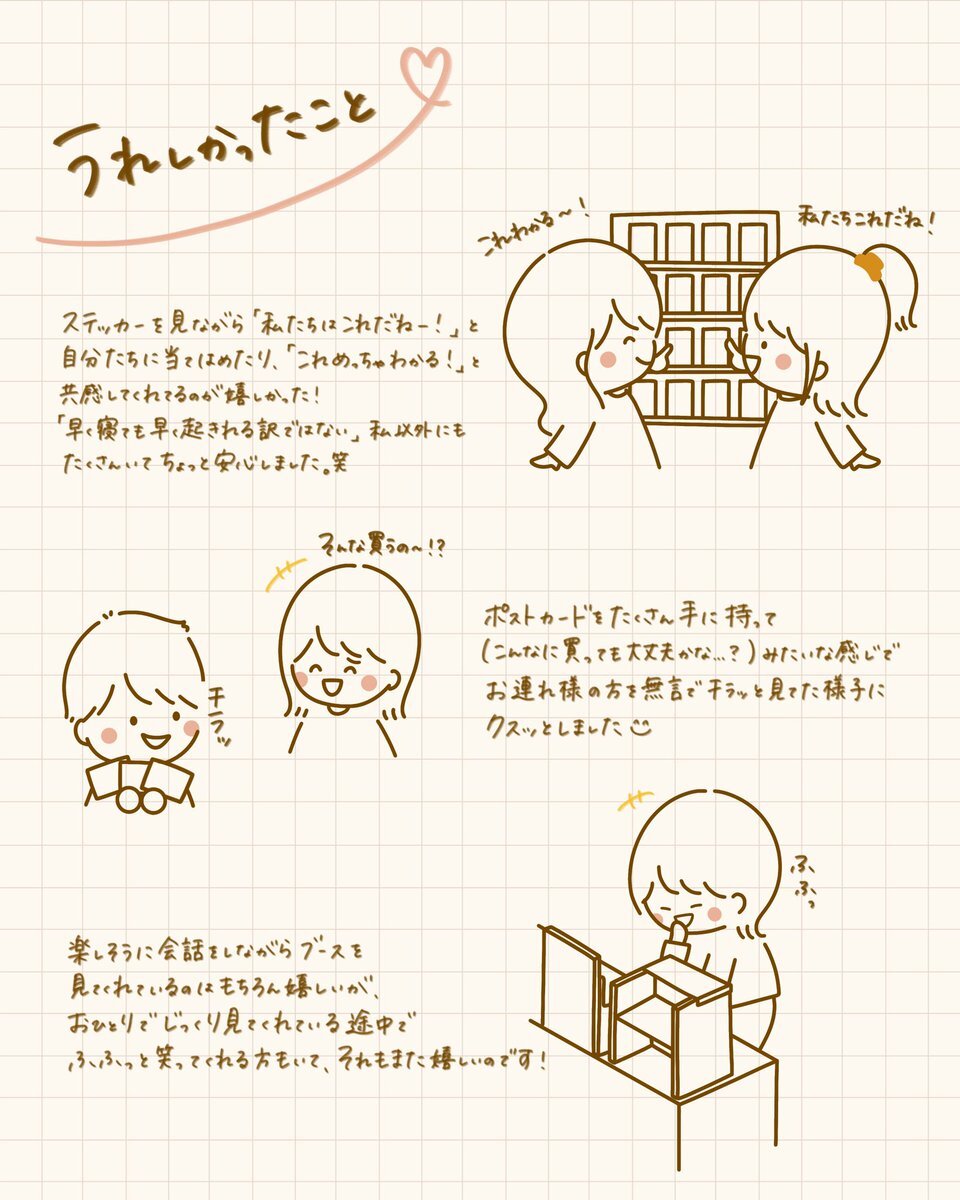 うれしかったこと
これわかる〜！
私たちこれだね！
ステッカーを見ながら「私たちはこれだねー！」と
自分たちに当てはめたり、「これめっちゃわかる！」と
共感してくれてるのが嬉しかった！
「早く寝ても早く起きれる訳ではない」私以外にも
たくさんいてちょっと安心しました。笑
そんな買うの〜!?
チラッ
ポストカードをたくさん手に持って
(こんなに買っても大丈夫かな...？)みたいな感じで
お連れ様の方を無言でチラッと見てた様子に
クスッとしました
ふふっ
楽しそうに会話をしながらブースを
見てくれているのはもちろん嬉しいが、
おひとりでじっくり見てくれている途中で
ふふっと笑ってくれる方もいて、それもまた嬉しいのです！